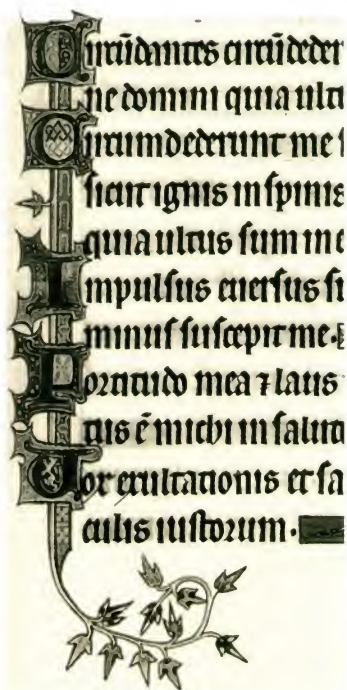 Circūdantes circūdeder
ne domini quia ulti
Circumdederunt me ſ
ſicut ignis in ſpinis
quia ultus ſum in e
Impulſus euerſus ſ
minus ſuſcepit me.
Fortitudo mea ⁊ laus
tus ē michi in ſalut
Uox exultationis et ſa
culis iuſtorum.